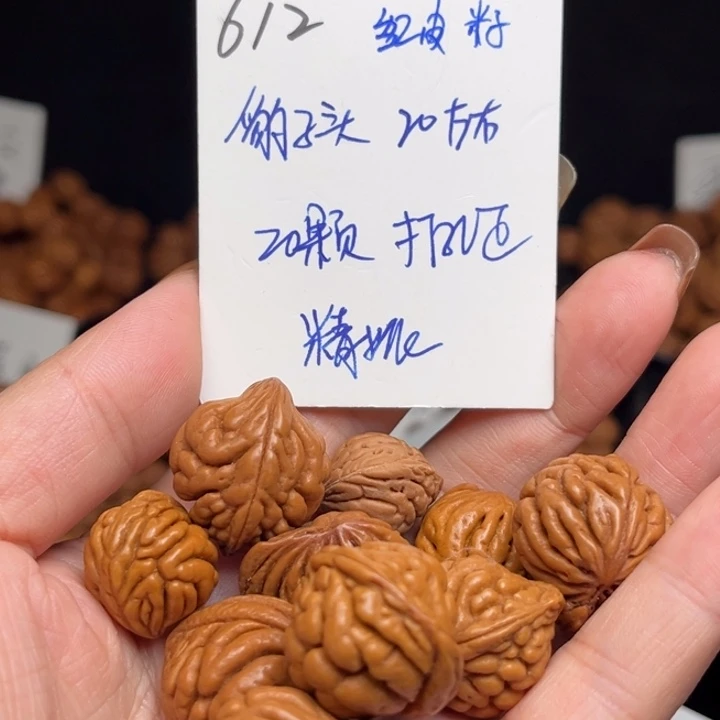 612 红皮籽
豹子头 20左右
20颗
精挑